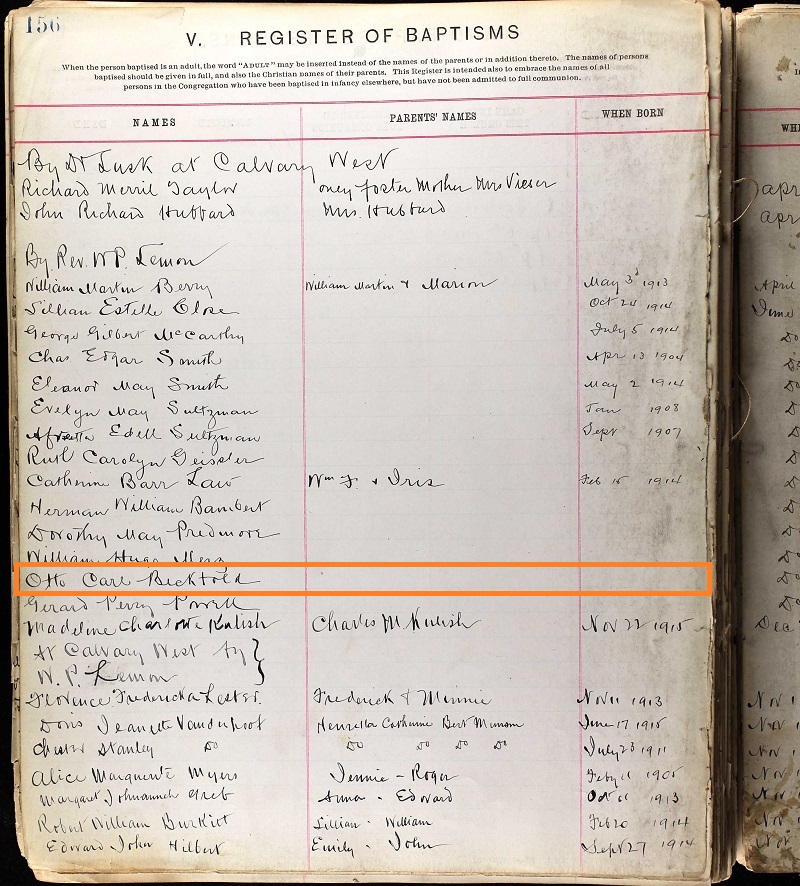 156
V. REGISTER OF BAPTISMS
When the person baptised is an adult, the word "ADULT" may be inserted instead of the names of the parents or in addition thereto. The names of persons
baptised should be given in full, and also the Christian names of their parents. This Register is intended also to embrace the names of all
persons in the Congregation who have been baptised in infancy elsewhere, but have not been admitted to full communion.
NAMES PARENTS' NAMES WHEN BORN
By Dr Lusk at Calvary West
Richard Merril Taylor foster Mother Mrs
John Richard Hubbard Mrs. Hubbard
By Rev. W P. Lemon
William Martin Berry William Martin & Marion May 3d 1913
Lillian Estelle Close Oct 24 1914
George Gilbert McCarthy July 5 1914
Chas Edgar Smith Apr 13 1904
Eleanor May Smith May 2 1914
Evelyn May Sultzman Jan 1908
Edell Sultzman Sept 1907
Ruth Carolyn Geissler
Catherine Barr Law Wm F. & Iris Feb 15 1914
Herman William Bambert
Dorothy May Predmore
William Hugo
Otto Carl Becktold
Gerard Perry Powell
Madeline Charlotte Kulish Charles M Kulish Nov 22 1915
At Calvary West by
W. P. Lemon
Florence Fredericka Frederick & Minnie Nov 11 1913
Doris Jeanette Vanderhoof Henrietta Catherine Bert June 17 1915
Chester Stanley Do Do Do Do Do July 23 1911
Alice Marguerite Myers Jennie - Roger Feby 11 1905
Margaret Greb Anna - Edward Oct 11 1913
Robert William Burkitt Lillian - William Feb 20 1914
Edward John Hilbert Emily - John Sept 27 1914